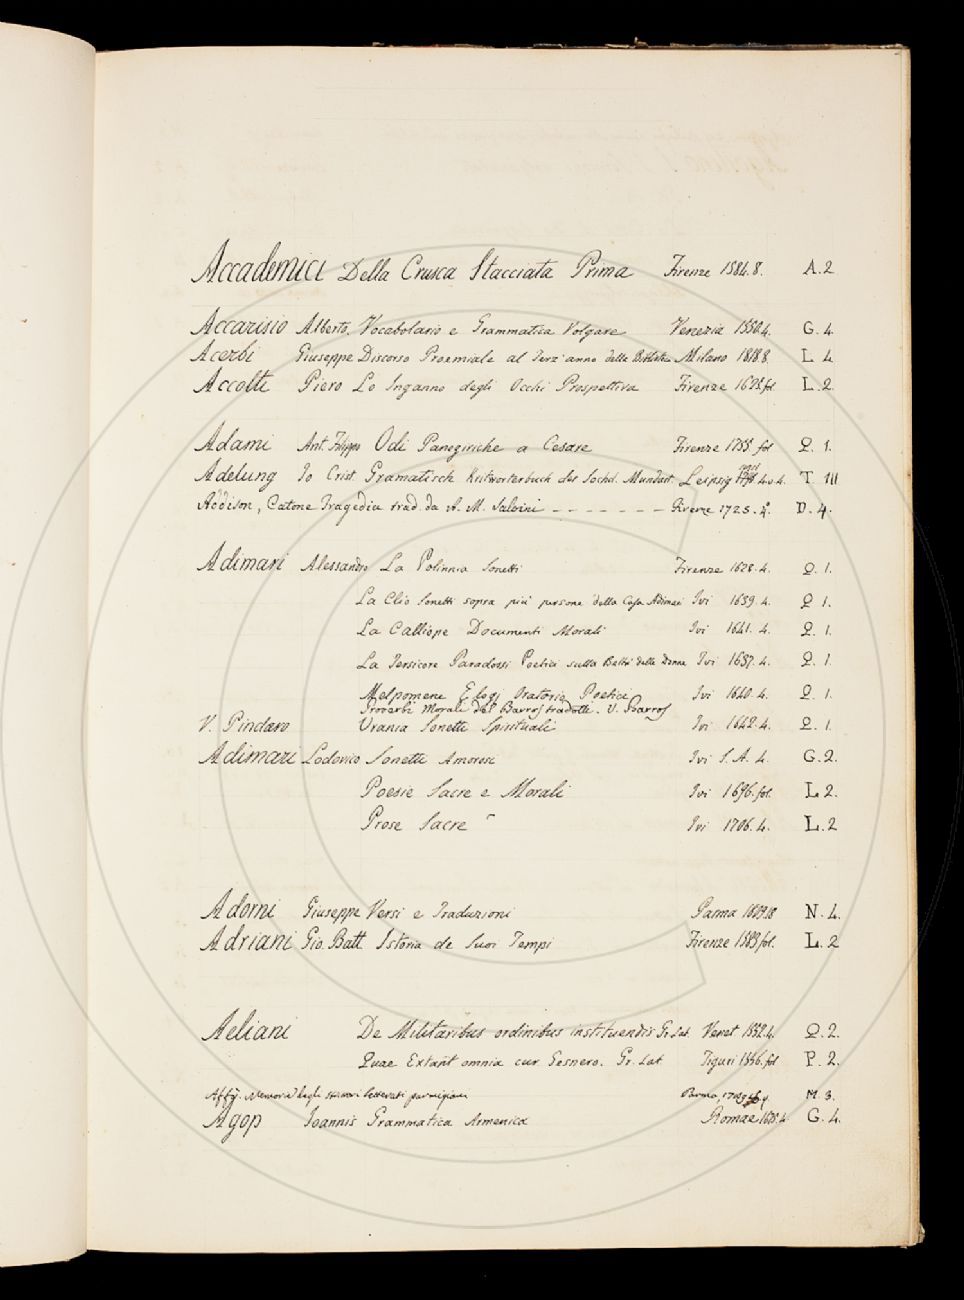 Accademici Della Crusca Stacciata Prima Firenze 1584.8. A.2
Accarisio Alberto. Vocabolario e Grammatica Volgare Venezia 1550.4. G. 4.
Acerbi Giuseppe Discorso Proemiale al Terz' anno della Milano 1818.8. L. 4
Accolti Piero Lo Inganno degli Occhi Prospettiva Firenze 1625.fol L. 2.
Adami Ant. Filippo Odi Panegiriche a Cesare Firenze 1755. fol Q. 1.
Adelung Io Crist Gramatisch des Hochd. Mundart Leipzig 4. T. III
Addison, Catone Tragedia trad. da A. M. Salvini - - - - - - - Firenze 1725. 4.° D. 4.
Adimari Alessandro La Polinnia Sonetti Firenze 1628. 4. Q. 1.
La Clio Sonetti sopra più persone della Casa Adimari Ivi 1639. 4. Q 1.
La Calliope Documenti Morali Ivi 1641. 4. Q. 1.
La Tersicore Paradossi Poetici sulla Beltà delle Donne Ivi 1637. 4. Q. 1.
Melpomene Elogj Oratorio Poetici Ivi 1640. 4. Q. 1.
Proverbi Morali del Barros tradotti. V. Barros
V. Pindaro Urania Sonetti Spirituali Ivi 1642. 4. Q. 1.
Adimari Lodovico Sonetti Amorosi Ivi S. A. 4. G. 2.
Poesie Sacre e Morali Ivi 1696. fol. L 2.
Prose Sacre Ivi 1706. 4. L. 2
Adorni Giuseppe Versi e Traduzioni Parma N. 4.
Adriani Gio. Batt. Istoria de Suoi Tempi Firenze 1583 fol. L. 2
Aeliani De Militaribus ordinibus instituendis Gr. Lat. Venet 1552.4. Q. 2.
Quae Extant omnia cur Gesnero. Gr. Lat Tiguri 1556. fol P. 2.
Affò. Memorie degli scrittori letterati parmigiani Parma, M. 3.
Agop Ioannis Grammatica Armenica Romae 1675. 4 G. 4.